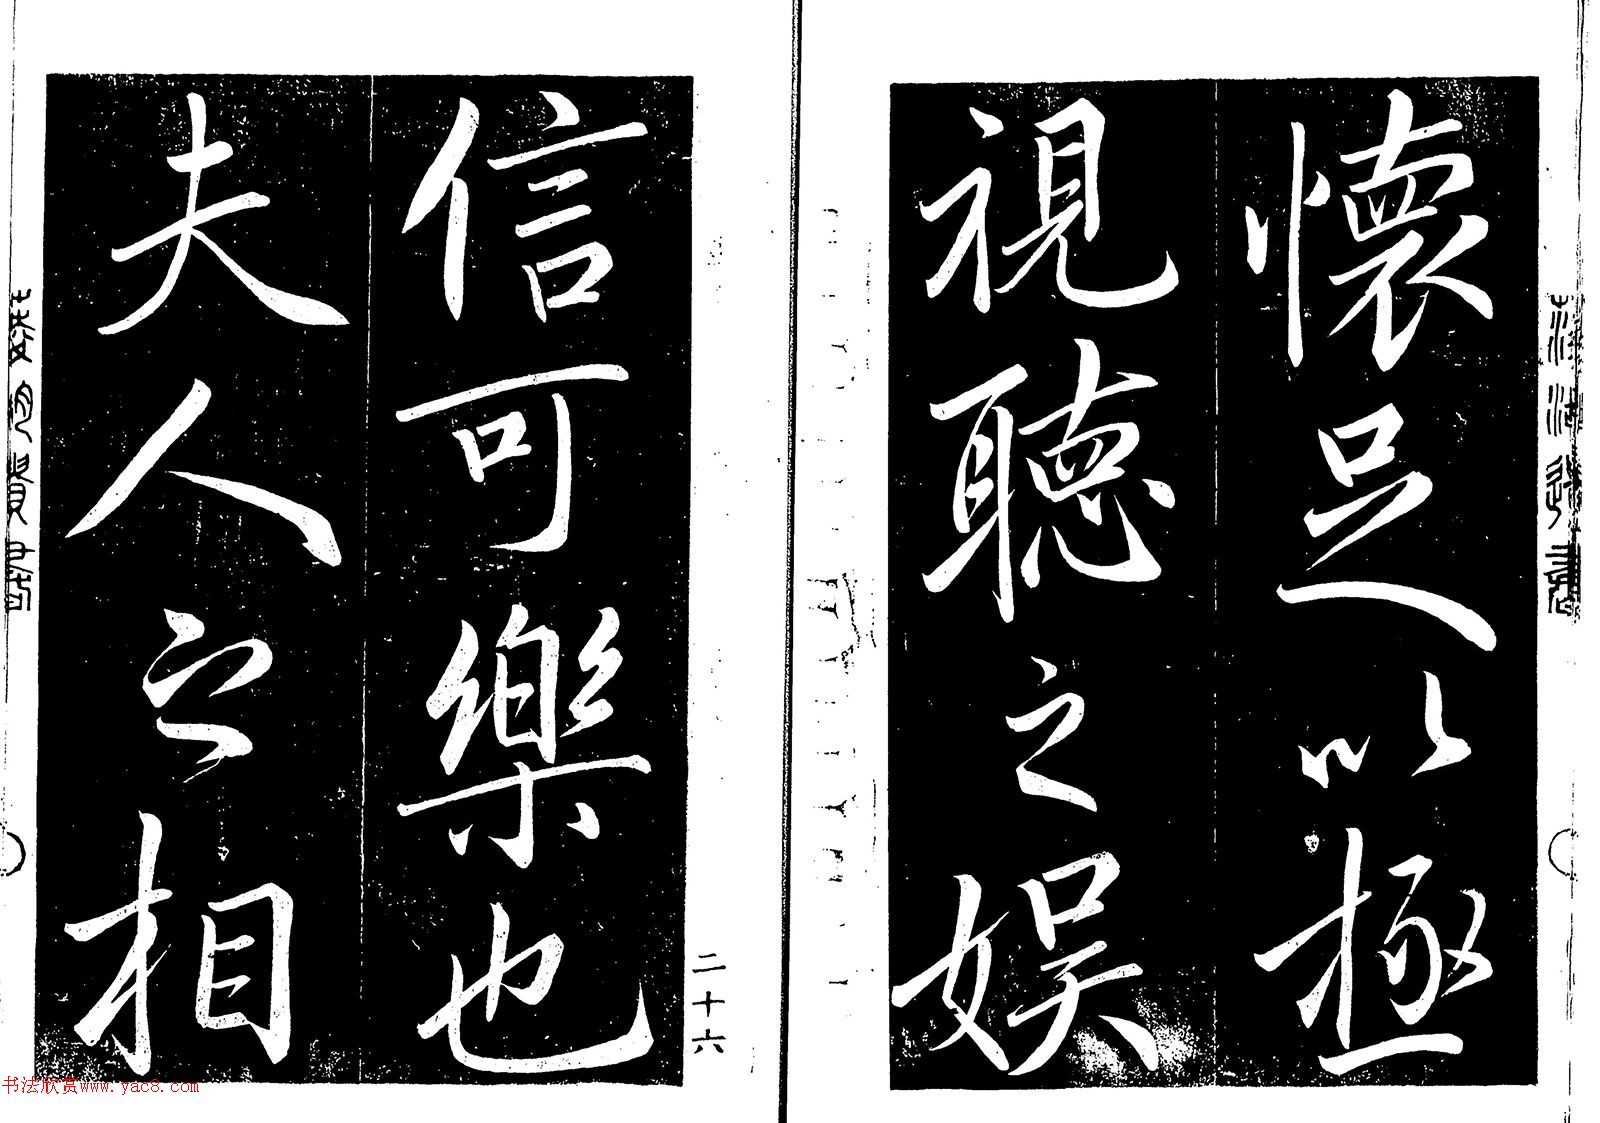 懷足以極
視聽之娛
信可樂也
夫人之相
二十六
书法欣赏www.yac8.com